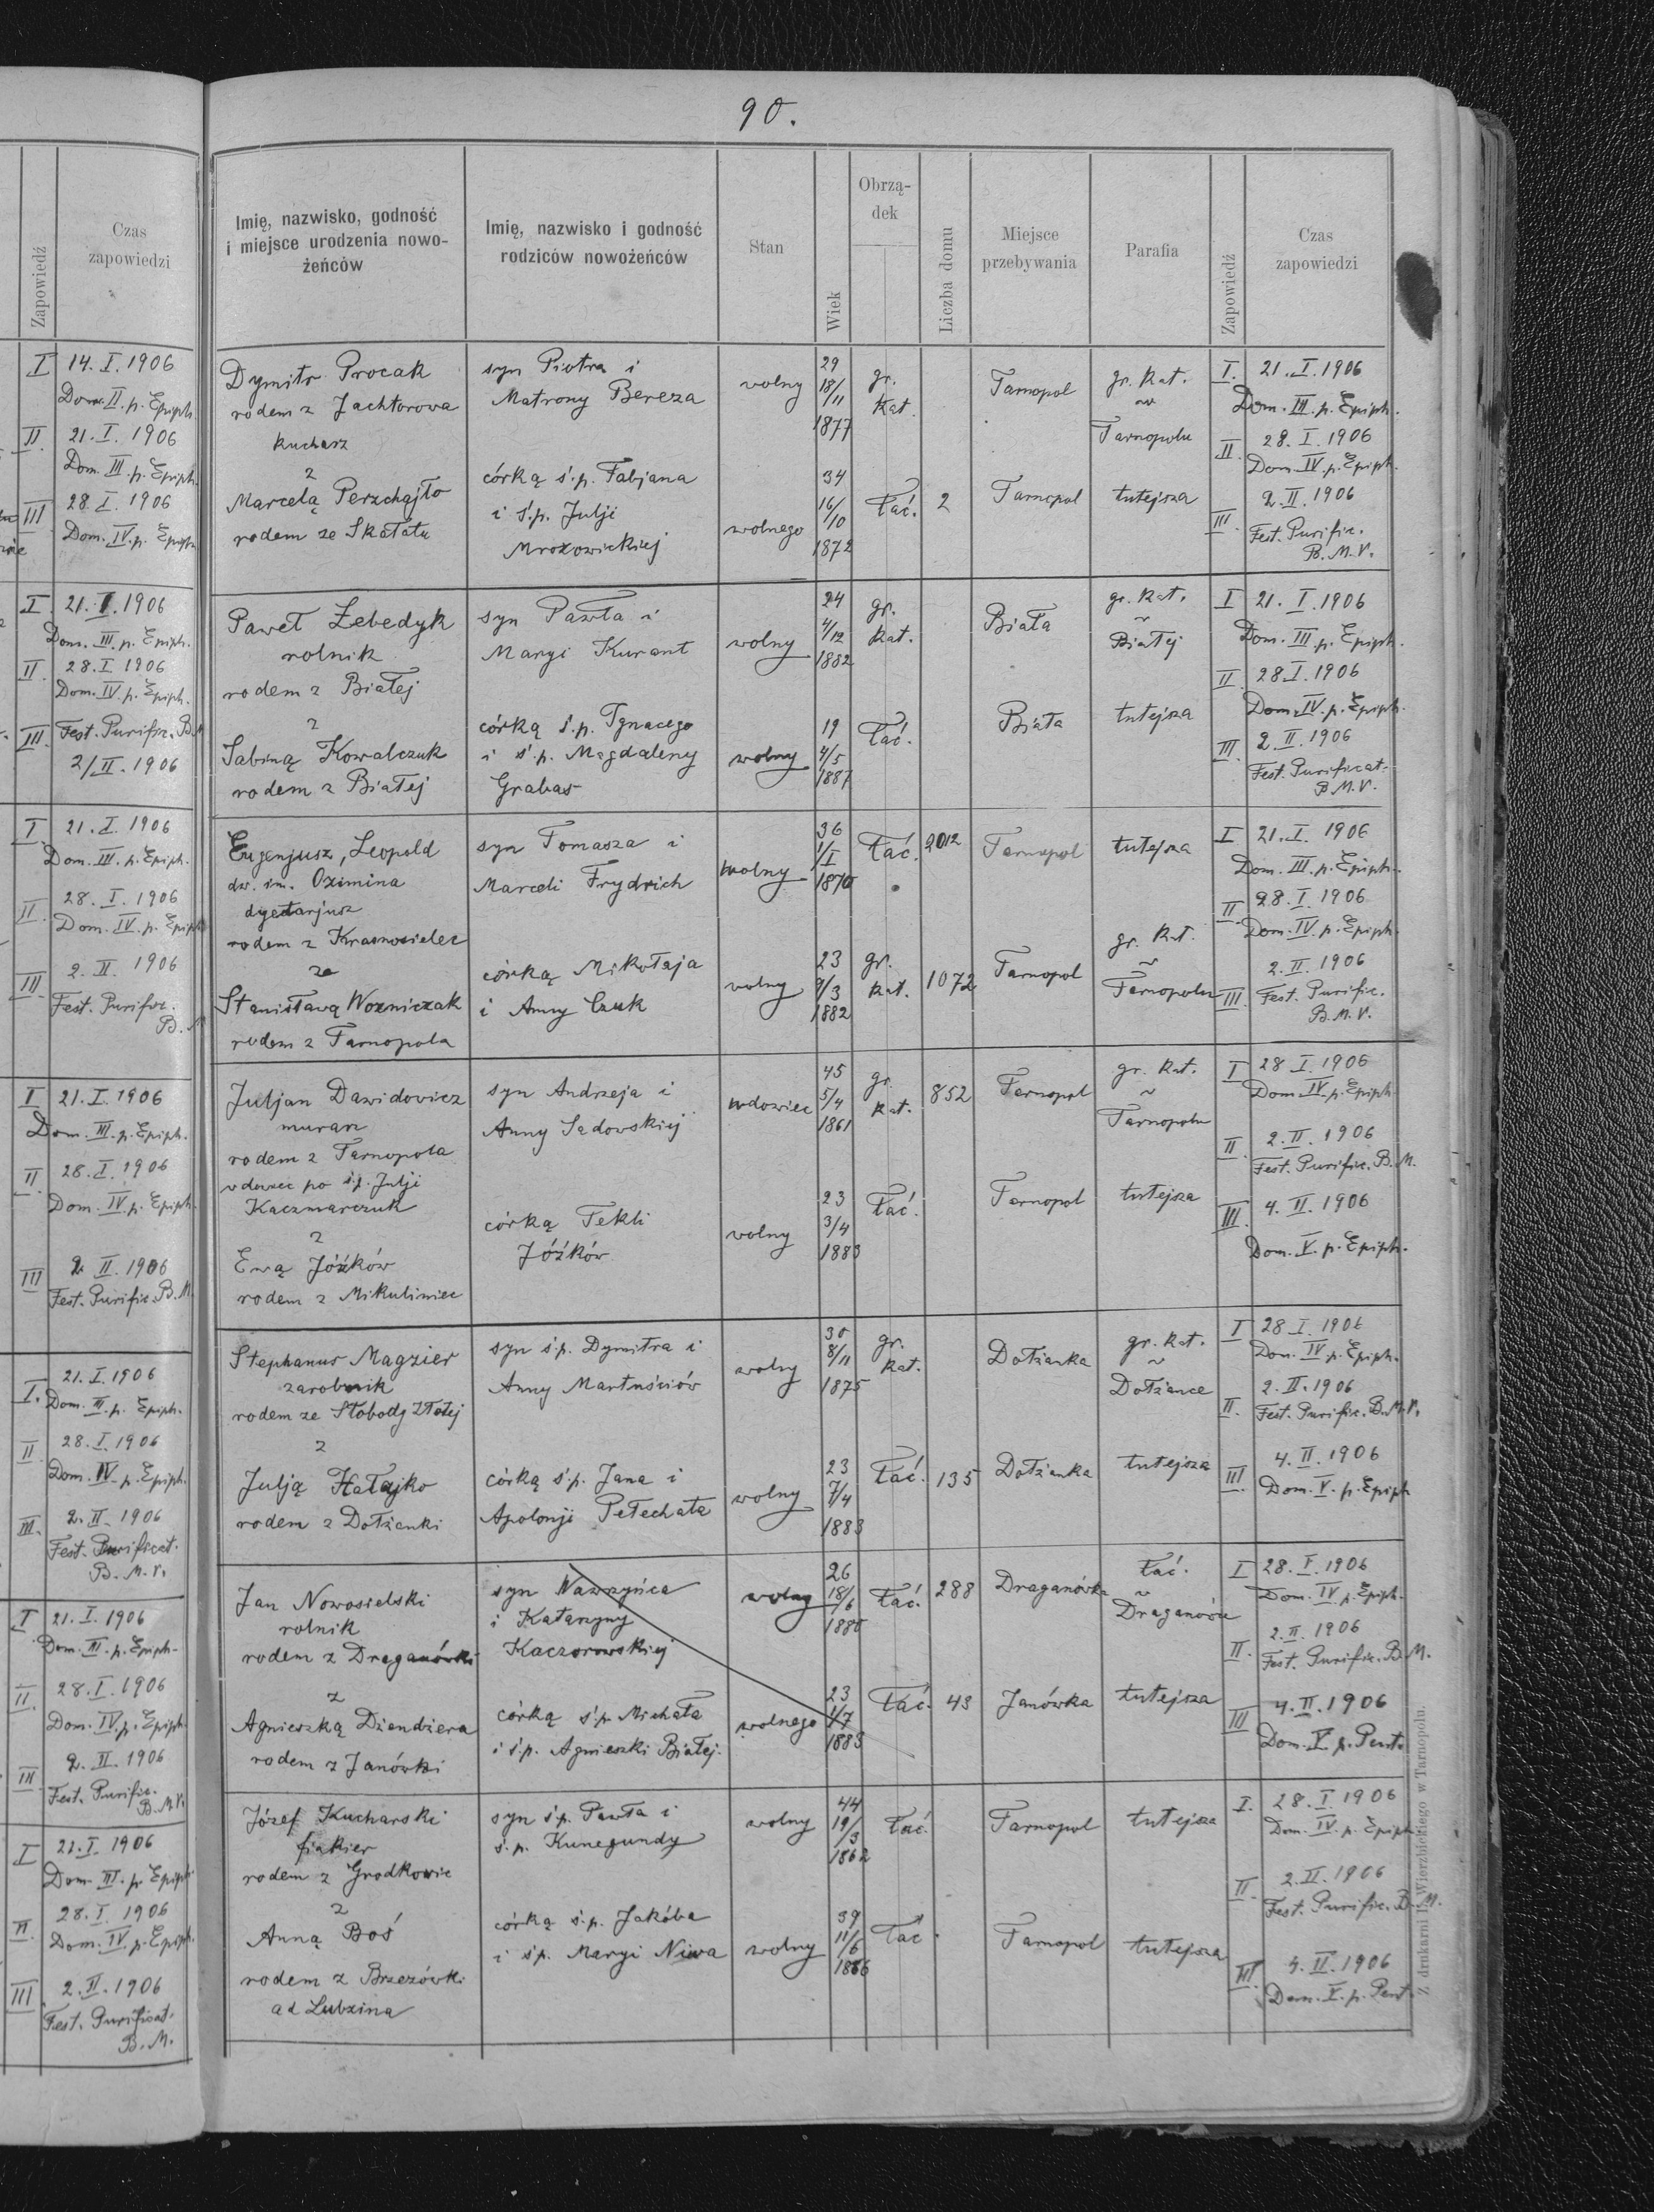 Zapowiedź
Czas
zapowiedzi
I 14. I. 1906
Dom. II. p. Epiph.
II. 21. I. 1906
Dom. III. p. Epiph.
III 28. I. 1906
Dom. IV. p. Epiph.
I. 21. I. 1906
Dom. III. p. Epiph.
II. 28. I 1906
Dom. IV. p. Epiph.
III. Fest. Purific. B. M
2/II. 1906
I. 21. I. 1906
Dom. III. p. Epiph.
II. 28. I. 1906
Dom. IV. p. Epiph
III. 2. II. 1906
Fest. Purific.
B. M
I 21. I. 1906
Dom. III. p. Epiph.
II. 28. I. 1906
Dom. IV. p. Epiph.
III 2. II. 1906
Fest. Purific. B. M.
I. 21. I. 1906
Dom. III. p. Epiph.
II 28. I. 1906
Dom. IV. p. Epiph.
III. 2. II. 1906
Fest. Purificat.
B. M. V.
I. 21. I. 1906
Dom. III. p. Epiph.
II. 28. I. 1906
Dom. IV. p. Epiph.
III. 2. II. 1906
Fest. Purific.
B. M. V.
I 21. I. 1906
Dom. III. p. Epiph
II. 28. I. 1906
Dom. IV p. Epiph.
III. 2. II. 1906
Fest. Purificat.
B. M.
90.
Imię, nazwisko, godność
i miejsce urodzenia nowo-
żeńców
Imię, nazwisko i godność
rodziców nowożeńców
Stan
Wiek
Obrzą-
dek
Liczba domu
Miejsce
przebywania
Parafia
Zapowiedź
Czas
zapowiedzi
Dymitr Procak
rodem z Jachtorowa
kucharz
z
Marcelą Perzchajło
rodem ze Skałatu
syn Piotra i
Matrony Bereza
córką ś.p. Fabjana
i ś.p. Julji
Mrozowickiej
wolny
wolnego
29
18/11
1877
34
16/10
1872
gr.
kat.
łać.
2
Tarnopol
Tarnopol
gr. kat.
~
Tarnopolu
tutejsza
I. 21. I. 1906
Dom. III. p. Epiph.
II. 28. I. 1906
Dom. IV. p. Epiph.
III. 2. II. 1906
Fest. Purific.
B. M. V.
Paweł Łebedyk
rolnik
rodem z Białej
z
Sabiną Kowalczuk
rodem z Białej
syn Pawła i
Maryi Kurant
córką ś.p. Ignacego
i ś.p. Magdaleny
Grabas
wolny
wolny
24
4/12
1882
19
4/5
1887
gr.
kat.
łać.
Biała
Biała
gr. kat.
~
Białej
tutejsza
I 21. I. 1906
Dom. III. p. Epiph.
II. 28 I. 1906
Dom. IV. p. Epiph.
III. 2. II. 1906
Fest. Purificat.
B. M. V.
Eugenjusz, Leopold
dw. im. Ozimina
dyetarjusz
rodem z Krasnosielec
ze
Stanisławą Wozniczak
rodem z Tarnopola
syn Tomasza i
Marceli Frydrich
córką Mikołaja
i Anny Czuk
wolny
wolny
36
1/I
1870
23
9/3
1882
łać.
gr.
kat.
2012
1072
Tarnopol
Tarnopol
tutejsza
gr. kat.
~
Tarnopolu
I 21. I. 1906
Dom. III. p. Epiph.
II 28. I. 1906
Dom. IV. p. Epiph.
III. 2. II. 1906
Fest. Purific.
B. M. V.
Juljan Dawidowicz
murarz
rodem z Tarnopola
wdowiec po ś.p. Julji
Kaczmarczuk
z
Ewą Jóźków
rodem z Mikuliniec
syn Andrzeja i
Anny Sadowskiej
córką Tekli
Jóźków
wdowiec
wolny
45
5/4
1861
23
3/4
1883
gr.
kat.
łać.
852
Tarnopol
Tarnopol
gr. kat.
~
Tarnopolu
tutejsza
I 28 I. 1906
Dom. IV. p. Epiph
II. 2. II. 1906
Fest. Purific. B. M.
III. 4. II. 1906
Dom. V. p. Epiph.
Stephanus Magzier
zarobnik
rodem ze Słobody Złotej
z
Julją Hałajko
rodem z Dołżanki
syn ś.p. Dymitra i
Anny Martuściów
córką ś.p. Jana i
Apolonji Pełechata
wolny
wolny
30
8/11
1875
23
7/4
1883
gr.
kat.
łać.
135
Dołżanka
Dołżanka
gr. kat.
~
Dołżance
tutejsza
I 28 I. 1906
Dom. IV. p. Epiph.
II. 2. II. 1906
Fest. Purific. B. M. V.
III. 4. II. 1906
Dom. V. p. Epiph
Jan Nowosielski
rolnik
rodem z Draganówki
z
Agnieszką Dziendziera
rodem z Janówki
syn Wawrzyńca
i Katarzyny
Kaczorowskiej
córką ś.p. Michała
i ś.p. Agnieszki Białej.
wolny
wolnego
26
18/6
1880
23
1/7
1883
łać.
łać.
288
43
Draganówka
Janówka
łać.
~
Draganówce
tutejsza
I 28. I. 1906
Dom. IV. p. Epiph.
II. 2. II. 1906
Fest. Purific. B. M.
III 4. II. 1906
Dom. V p. Pent.
Józef Kucharski
fiakier
rodem z Grodkowic
z
Anną Boś
rodem z Brzezówki
ad Lubzina
syn ś.p. Pawła i
ś.p. Kunegundy
córką ś.p. Jakóba
i ś.p. Maryi Niwa
wolny
wolny
44
19/3
1862
39
11/6
1866
łać.
łać.
Tarnopol
Tarnopol
tutejsza
tutejsza
I. 28. I. 1906
Dom. IV. p. Epiph
II. 2. II. 1906
Fest. Purific. B. M.
III. 4. II. 1906
Dom. V. p. Pent.
Z drukarni L. Wierzbickiego w Tarnopolu.